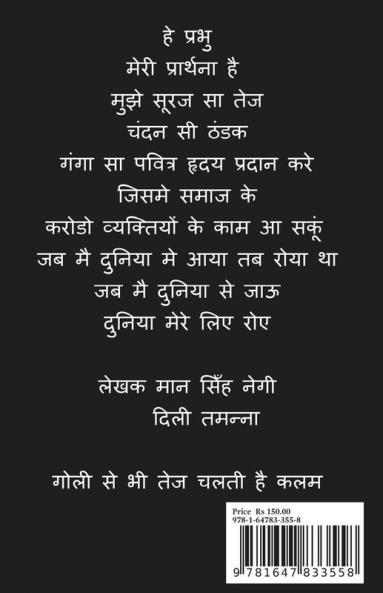 हे प्रभु
मेरी प्रार्थना है
मुझे सूरज सा तेज
चंदन सी ठंडक
गंगा सा पवित्र हृदय प्रदान करे
जिसमे समाज के
करोडो व्यक्तियों के काम आ सकूं
जब मै दुनिया मे आया तब रोया था
जब मै दुनिया से जाऊ
दुनिया मेरे लिए रोए
लेखक मान सिँह नेगी
दिली तमन्ना
गोली से भी तेज चलती है कलम
Price Rs 150.00
978-1-64783-355-8
9 781647 833558